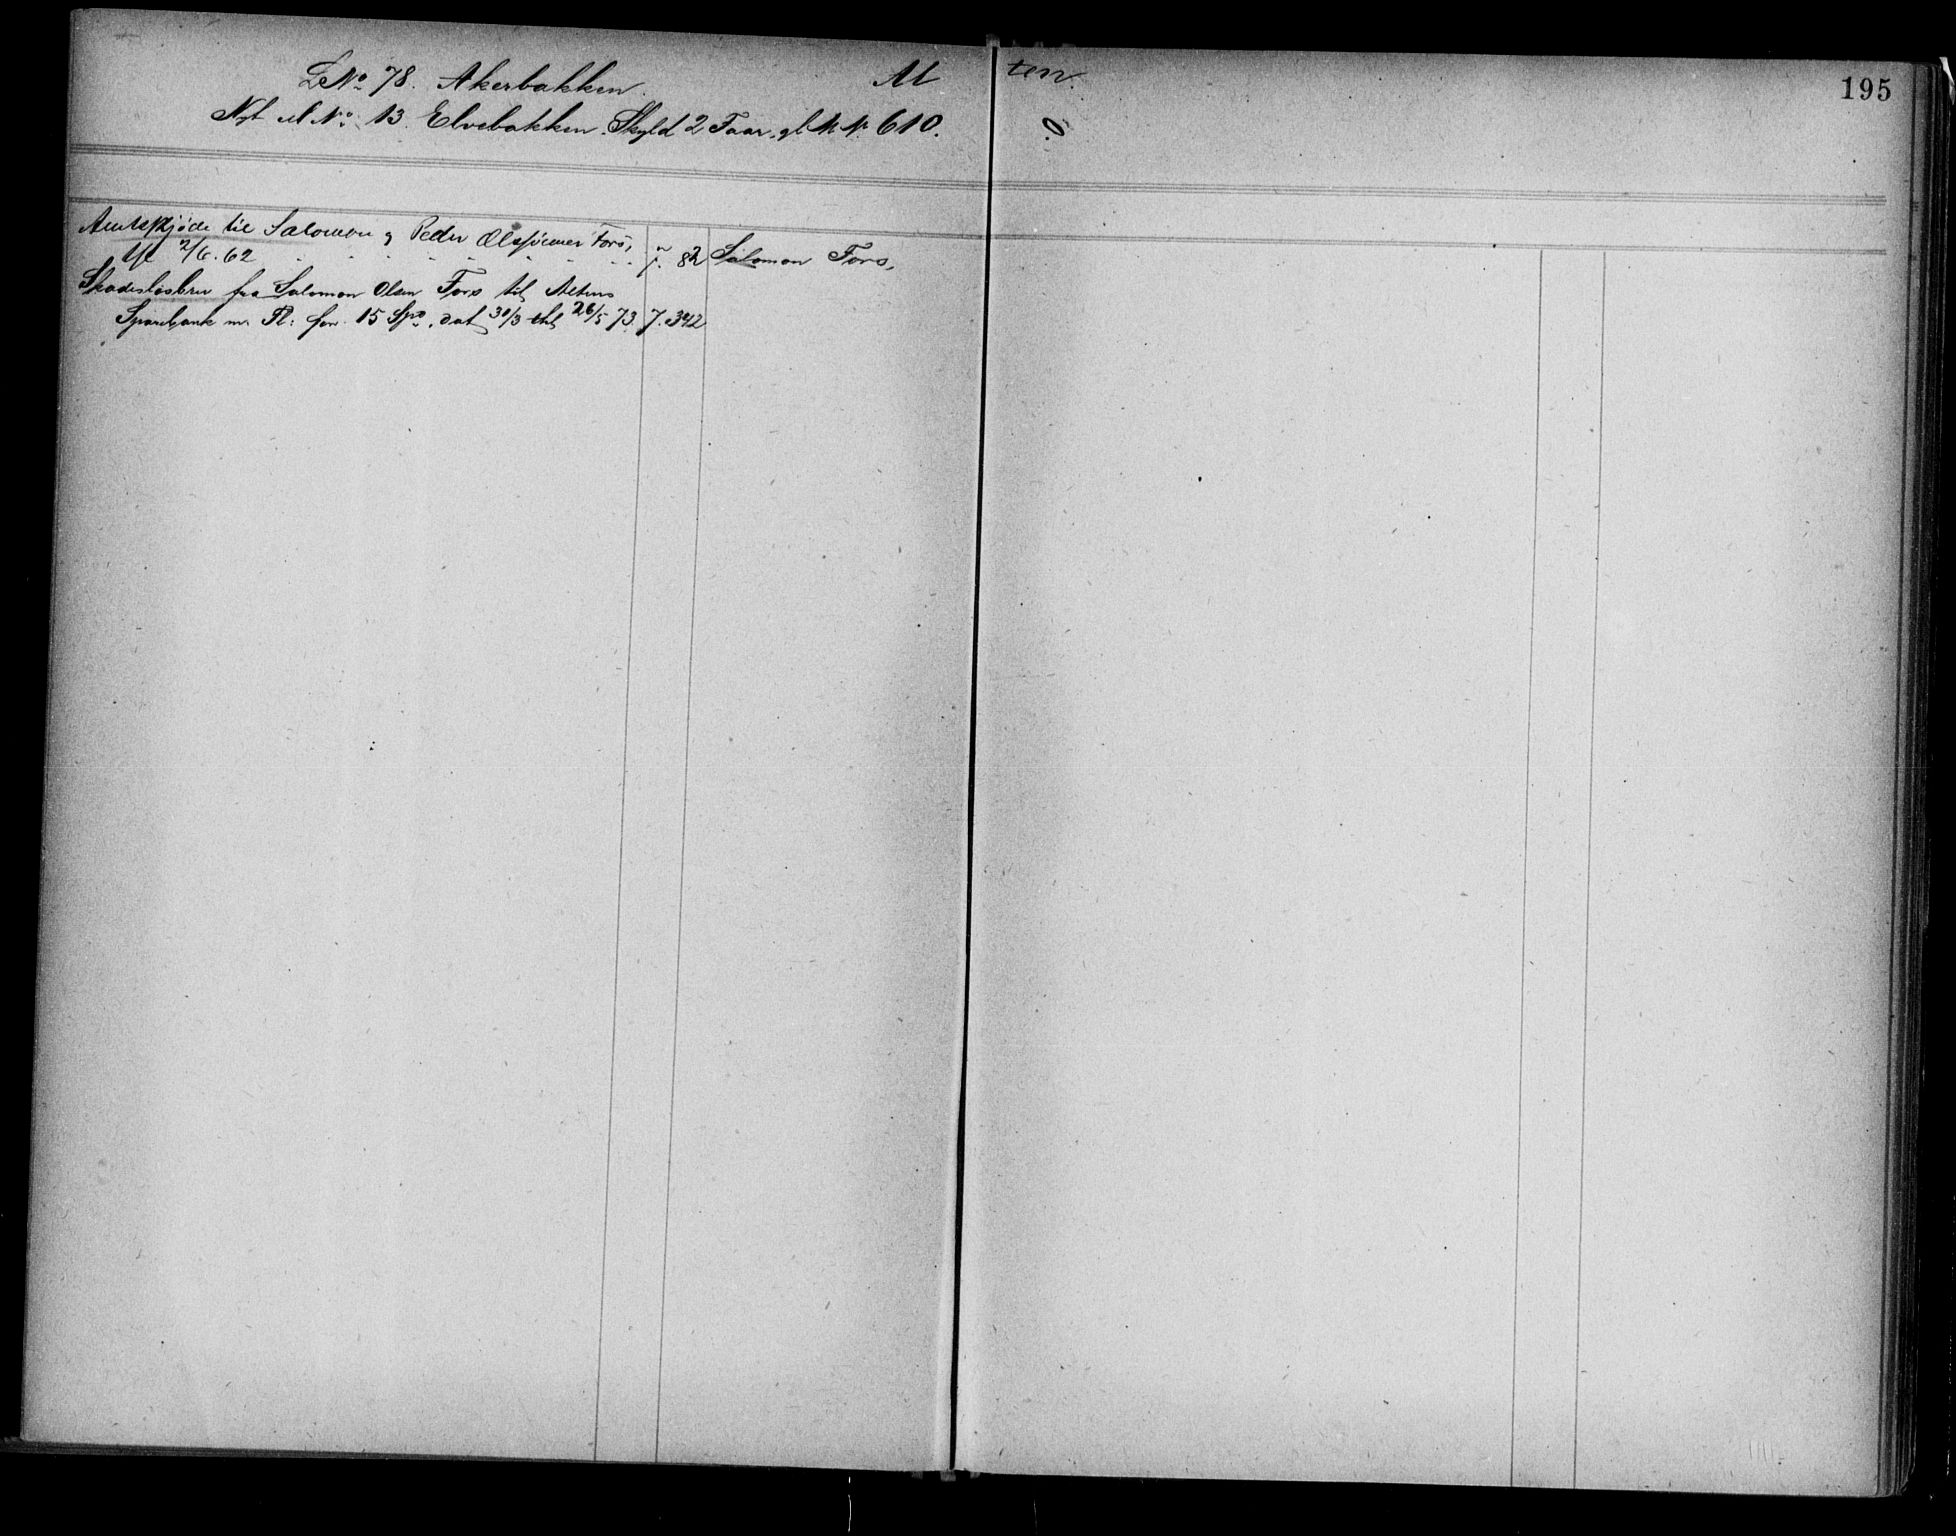 LNo 78. Akerbakken. Al ten. 195
Nyt M No 13. Elvebakken. Skyld 2 Faar, gl. M. N. 610.
Amtskjøde til Salomon & Peder Olssønner Fors,
tl. 2/6. 62 - - - - - - - - 82 Salomon Fors,
Skadesløsbrev fra Salomon Olsen Fors til Altens
Sparebank m. Fl: for 15 Spd, dat 31/3 thl 26/5 73. 7. 342